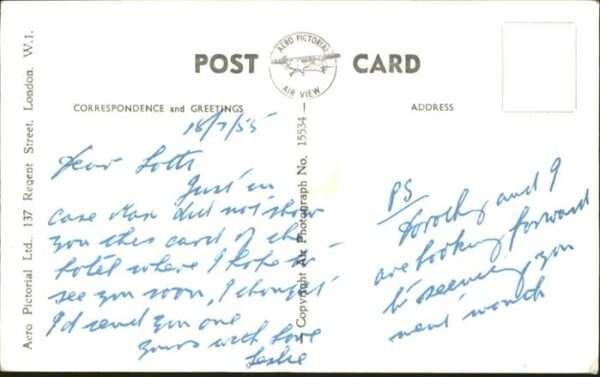 POST CARD
AERO PICTORIAL
AIR VIEW
CORRESPONDENCE and GREETINGS
ADDRESS
18/7/55
Dear Lotti
Just in
case Max did not show
you this card of the
hotel where I hope to
see you soon, I thought
I'd send you one
yours with love
Leslie
PS
Dorothy and I
are looking forward
to seeing you
next month
Aero Pictorial Ltd., 137 Regent Street, London, W.1.
Copyright Air Photograph No. 15534